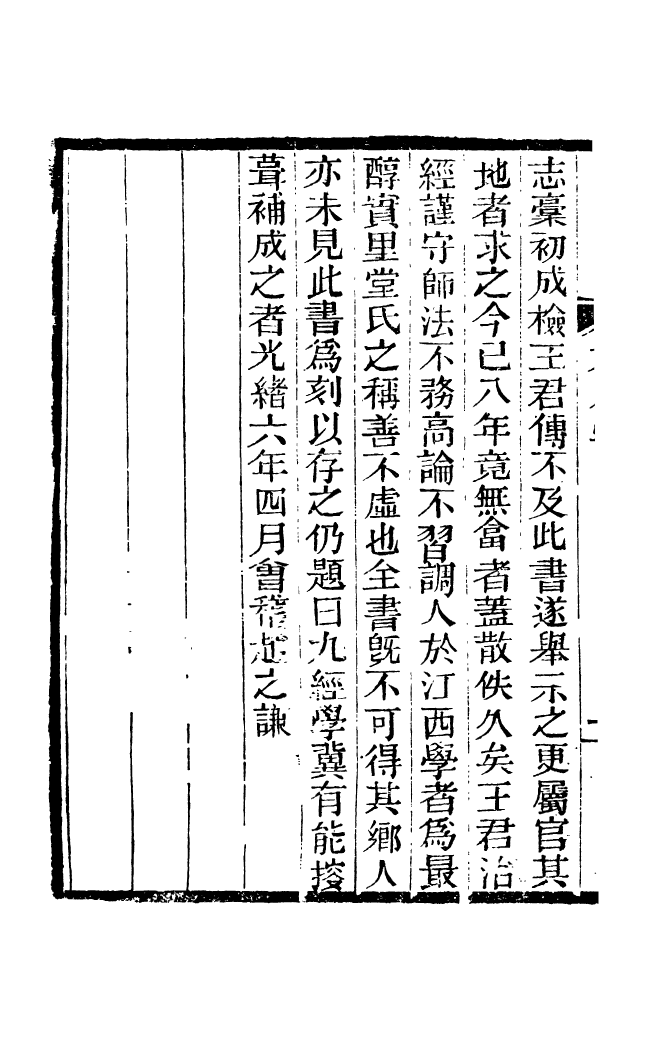 志稾初成檢王君傳不及此書遂舉示之更屬官其
地者求之今已八年竟無畣者蓋散佚久矣王君治
經謹守師法不務高論不習調人於江西學者爲最
醇實里堂氏之稱善不虛也全書旣不可得其鄉人
亦未見此書爲刻以存之仍題曰九經學冀有能接
葺補成之者光緒六年四月會稽趙之謙